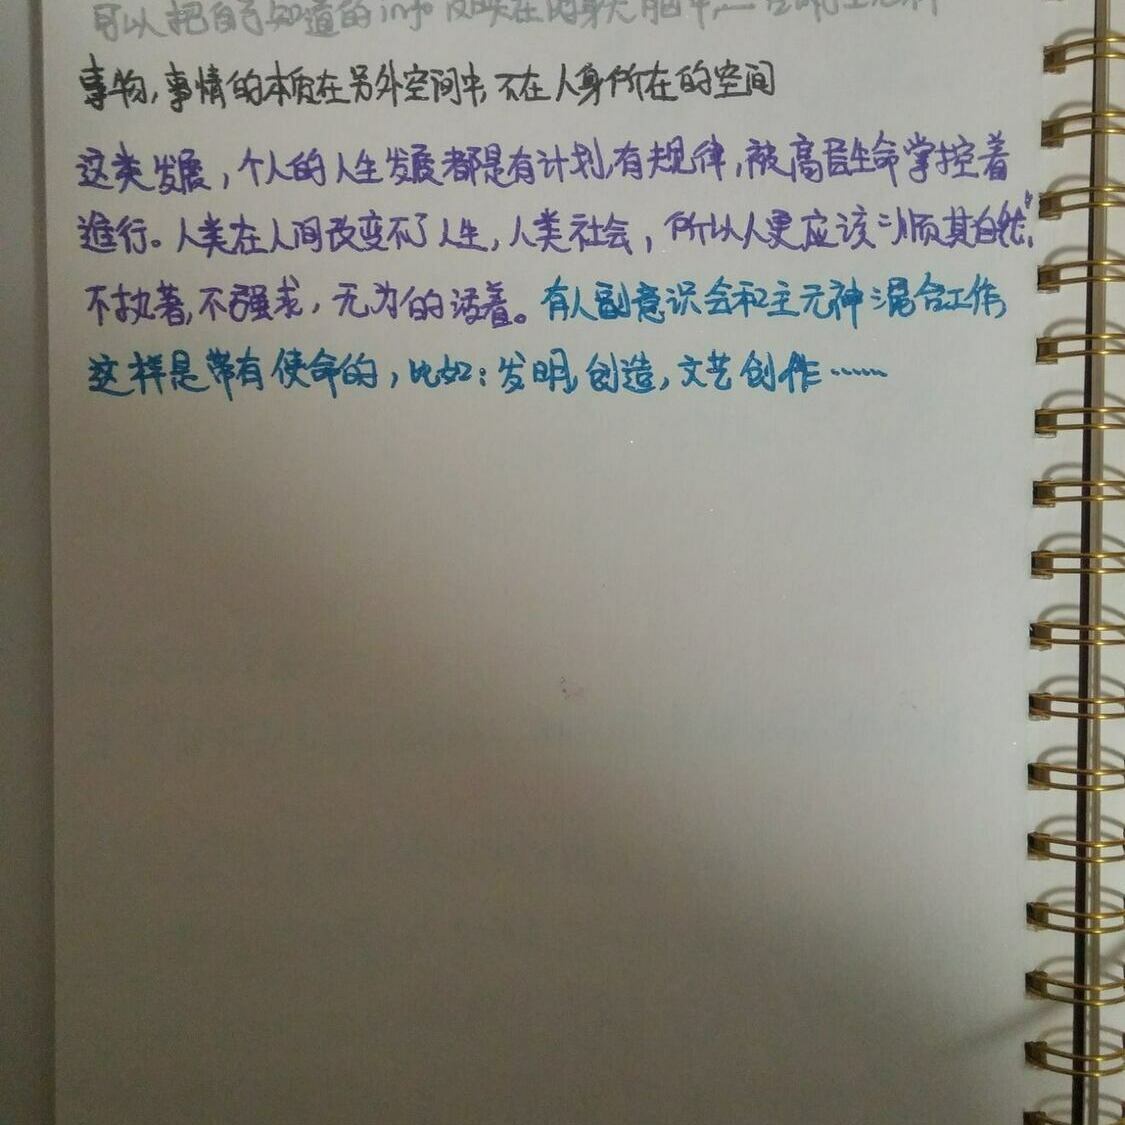 可以把自己知道的info反映在肉身大脑中,
事物,事情的本质在另外空间中,不在人身所在的空间
这类发展,个人的人生发展都是有计划,有规律,被高层生命掌控着
进行。人类在人间改变不了人生,人类社会,所以人更应该"顺其自然",
不执著,不强求,无为的活着。有人副意识会和主元神混合工作,
这样是带有使命的,比如:发明,创造,文艺创作……